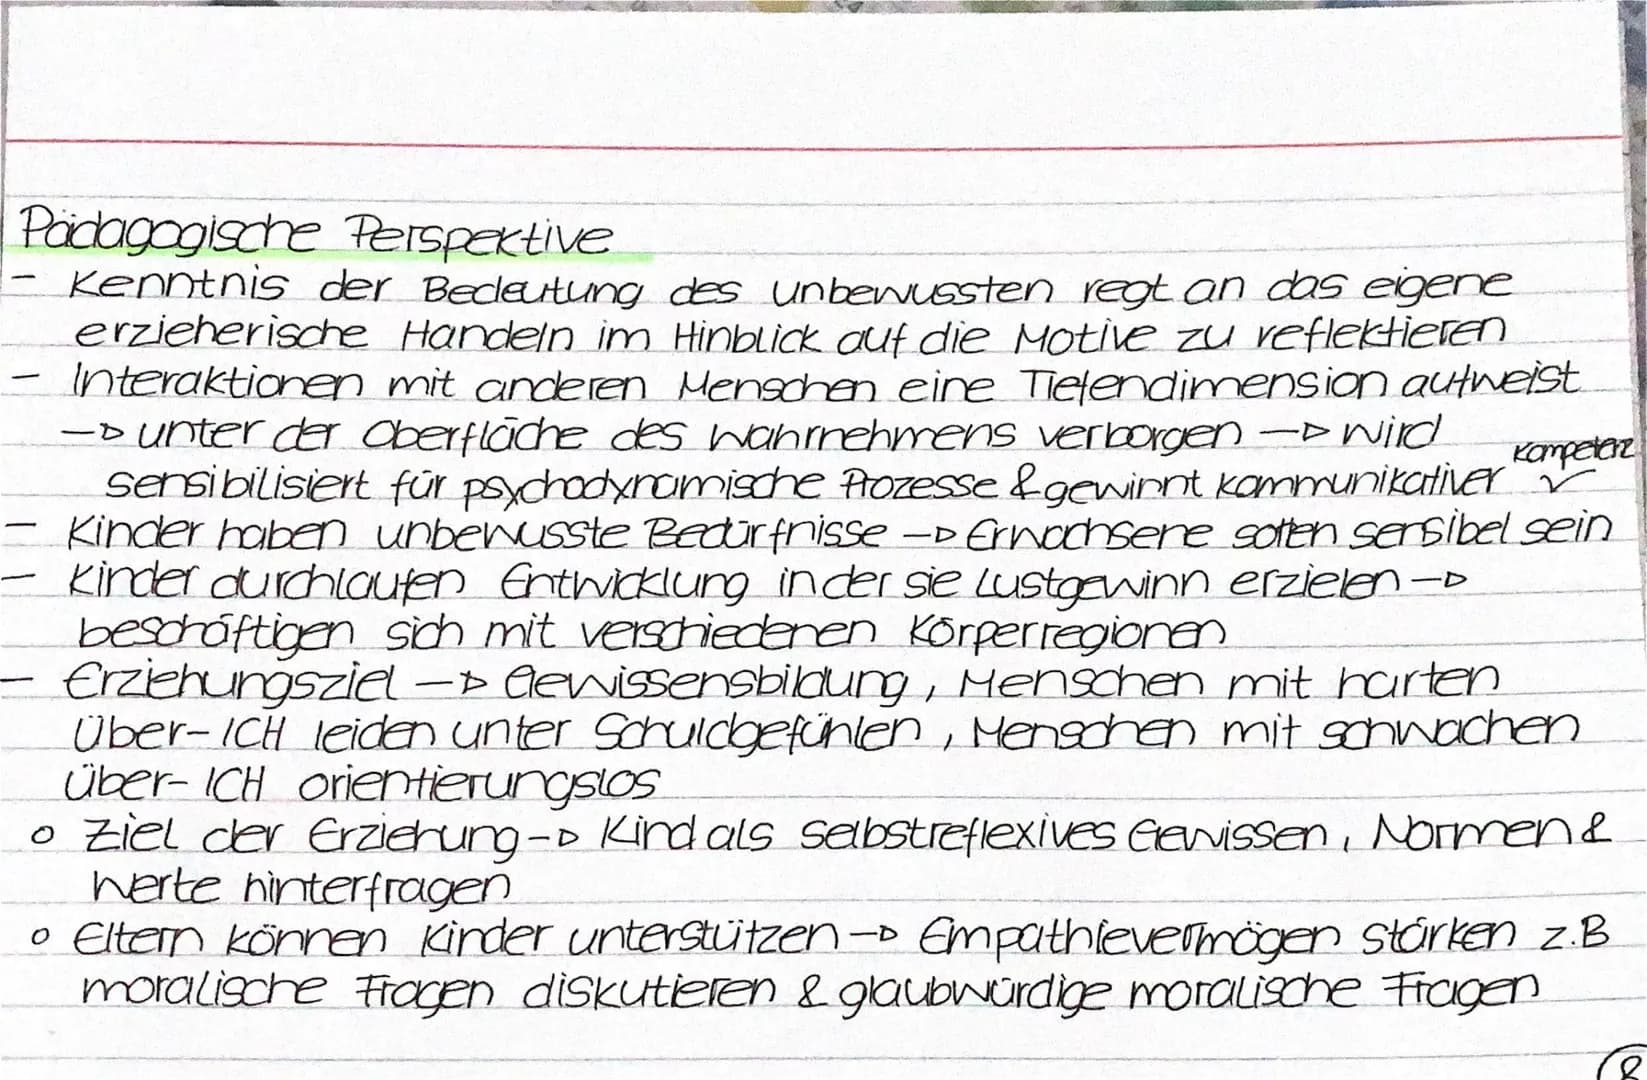 Pädagogische Perspektive
- Kenntnis der Bedeutung des unbewussten regt an das eigene
erzieherische Handeln im Hinblick auf die Motive zu reflektieren
- Interaktionen mit anderen Menschen eine Tiefendimension aufweist
→ unter der Oberfläche des Wahrnehmens verborgen → wird
Kompetenz
sensibilisiert für psychodynamische Prozesse & gewinnt kommunikativer ✓
- Kinder haben unbewusste Bedürfnisse → Erwachsene sollen sensibel sein
- Kinder durchlaufen Entwicklung in der sie Lustgewinn erzielen →
beschäftigen sich mit verschiedenen Körperregionen
- Erziehungsziel → Gewissensbildung, Menschen mit harten
Über-ICH leiden unter Schuldgefühlen, Menschen mit schwachen
Über-ICH orientierungslos
o Ziel der Erziehung → Kind als selbstreflexives Gewissen, Normen &
Werte hinterfragen
o Eltern können Kinder unterstützen → Empathievermögen stärken z.B
moralische Fragen diskutieren & glaubwürdige moralische Fragen
8